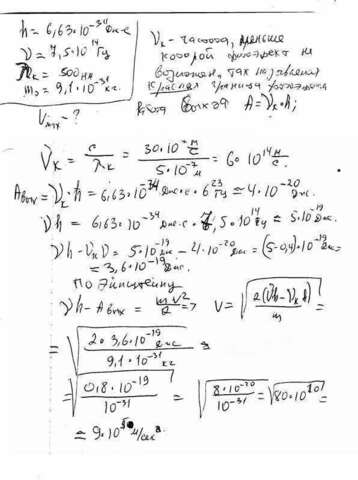 h = 6,63·10⁻³⁴ Дж·с
ν = 7,5·10¹⁴ Гц
λк = 500 нм
mэ = 9,1·10⁻³¹ кг.
Vmax - ?
νк - частота, меньше
которой фотоэффект не
возможен, так называемая
красная граница фотоэффекта
A = νк·h;
νк = c/λк = 30·10⁷ м/с / 5·10⁻⁷ м = 6·10¹⁴ м/с.
Aвых = νк·h = 6,63·10⁻³⁴ Дж·с·6²³ Гц ≃ 4·10⁻²⁰ Дж.
νh = 6,63·10⁻³⁴ Дж·с·7,5·10¹⁴ Гц ≃ 5·10⁻¹⁹ Дж.
νh - νкh = 5·10⁻¹⁹ Дж - 4·10⁻²⁰ Дж = (5-0,4)·10⁻¹⁹ Дж =
= 3,6·10⁻¹⁹ Дж.
по Эйнштейну
νh - Aвых = mv²/2 => V = √(2(νh-νкh)/m) =
= √(2·3,6·10⁻¹⁹ Дж·с / 9,1·10⁻³¹ кг) =
= √(0,8·10⁻¹⁹ / 10⁻³¹) = √(8·10⁻²⁰ / 10⁻³¹) = √(80·10¹⁰) =
≃ 9·10⁵ м/сек.